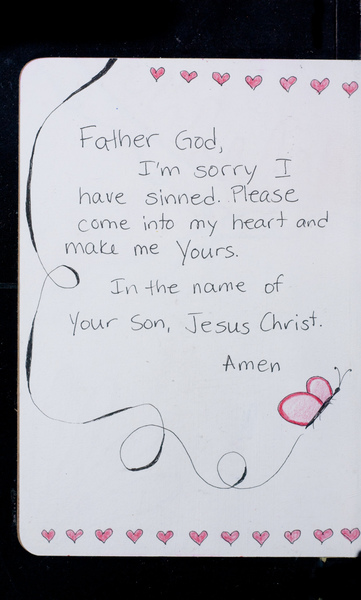 Father God,
I'm sorry I
have sinned. Please
come into my heart and
make me Yours.
In the name of
Your Son, Jesus Christ.
Amen